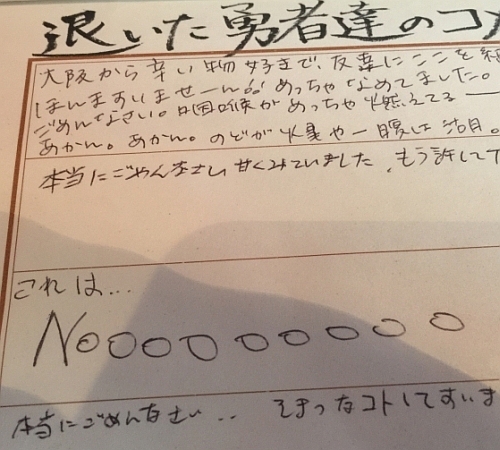 退いた勇者達のコメ
大阪から辛い物好きで、友達にここを紹
ほんますいませーん!! めっちゃなめてました。
ごめんなさい。咽喉がめっちゃ燃えてるー
あかん。あかん。のどが火臭や一腹は泊目。
本当にごめんなさい甘くみていました、もう許して下
これは...
Nooooooooo
本当にごめんなさい.. そまつなコトしてすいま